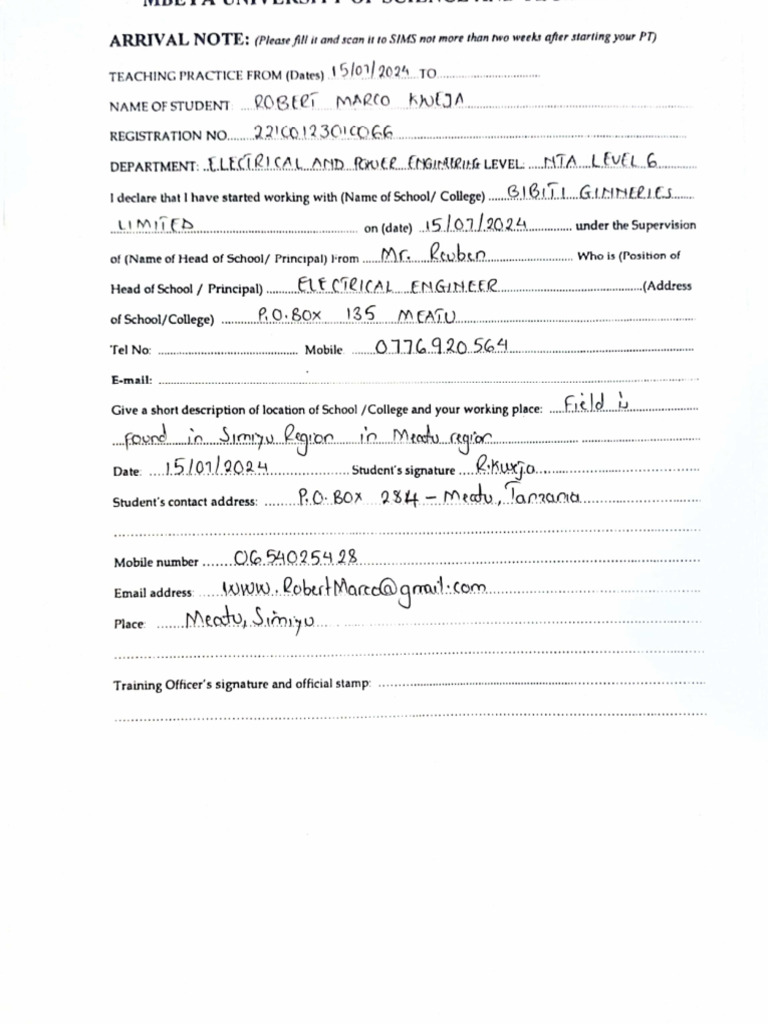 ARRIVAL NOTE: (Please fill it and scan it to SIMS not more than two weeks after starting your PT)
TEACHING PRACTICE FROM (Dates) 15/07/2024 TO
NAME OF STUDENT: ROBERT MARCO KWEJA
REGISTRATION NO. 22100123010066
DEPARTMENT: ELECTRICAL AND POWER ENGINEERING LEVEL: NTA LEVEL 6
I declare that I have started working with (Name of School/ College) BIBITI GINNERIES
LIMITED on (date) 15/07/2024 under the Supervision
of (Name of Head of School/ Principal) From Mr. Reuben Who is (Position of
Head of School / Principal) ELECTRICAL ENGINEER (Address
of School/College) P.O.BOX 135 MEATU
Tel No: Mobile 0776920564
E-mail:
Give a short description of location of School /College and your working place: Field is
found in Simiyu Region in Meatu region
Date: 15/07/2024 Student's signature
Student's contact address: P.O. BOX 284 - Meatu, Tanzania
Mobile number 0654025428
Email address: www.RobertMarco@gmail.com
Place: Meatu, Simiyu
Training Officer's signature and official stamp: